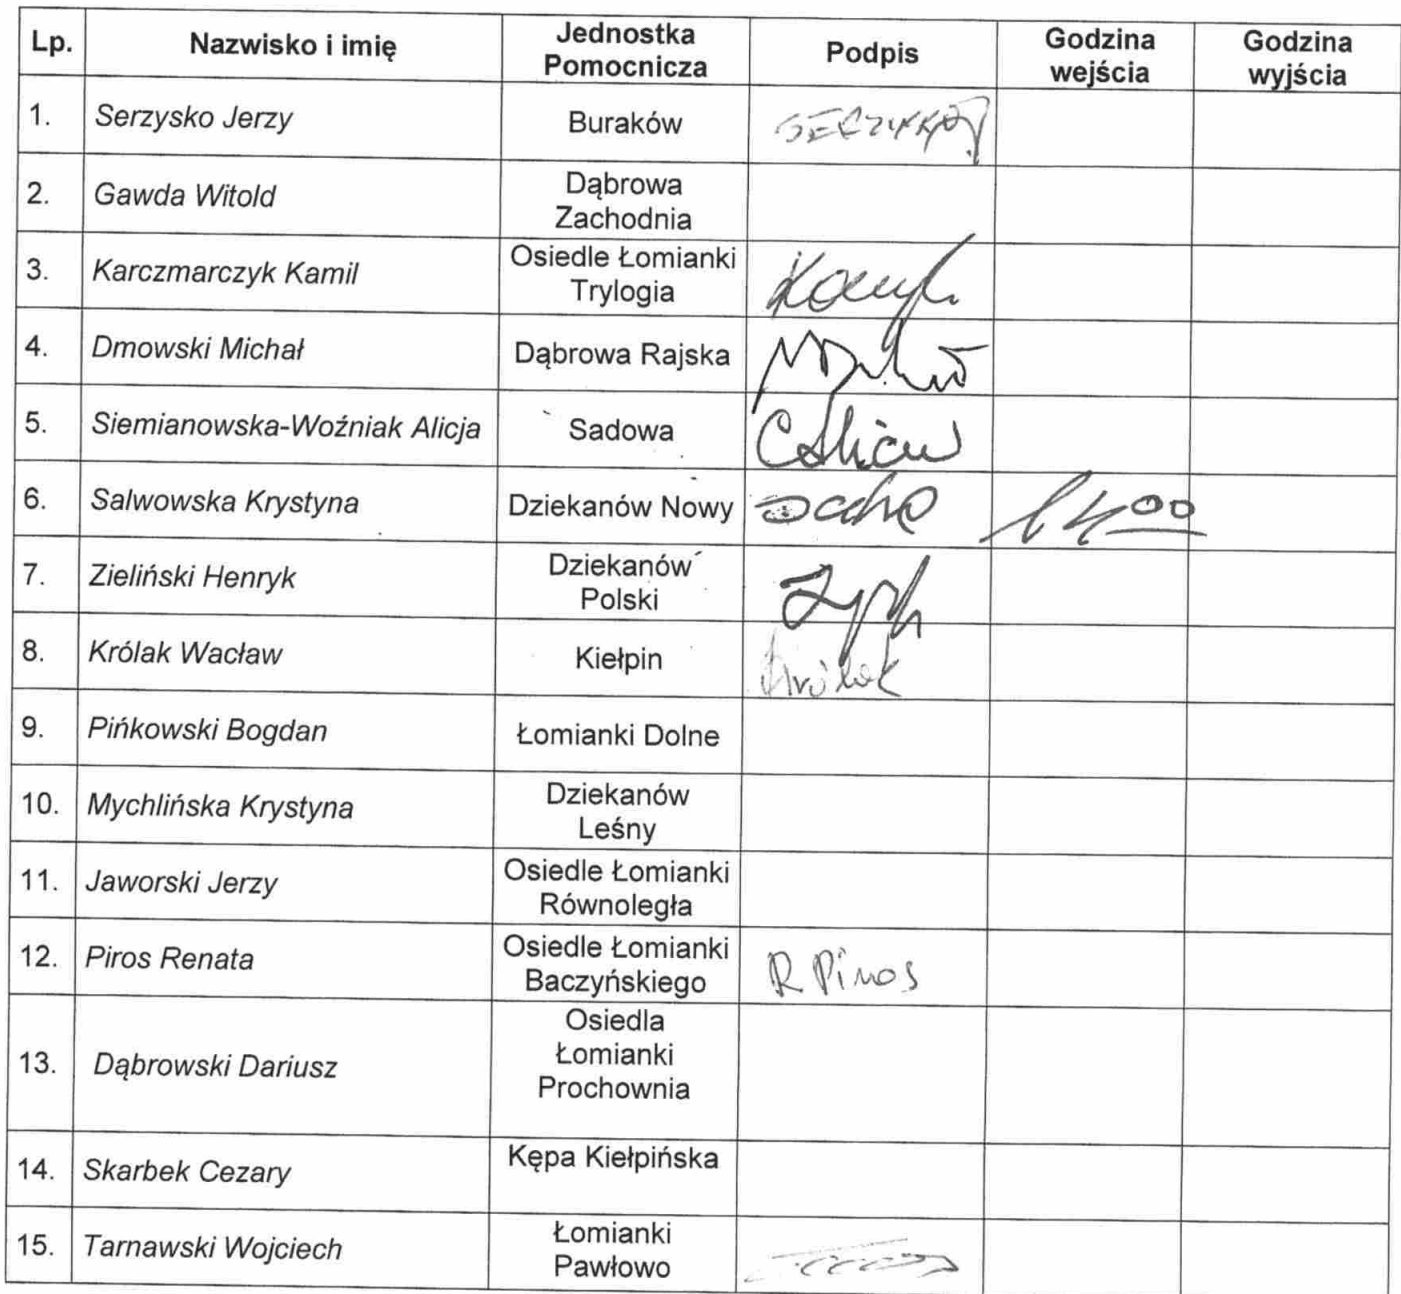 Lp. Nazwisko i imię Jednostka Pomocnicza Podpis Godzina wejścia Godzina wyjścia
1. Serzysko Jerzy Buraków
2. Gawda Witold Dąbrowa Zachodnia
3. Karczmarczyk Kamil Osiedle Łomianki Trylogia
4. Dmowski Michał Dąbrowa Rajska
5. Siemianowska-Woźniak Alicja Sadowa
6. Salwowska Krystyna Dziekanów Nowy 14 00
7. Zieliński Henryk Dziekanów Polski
8. Królak Wacław Kiełpin Królak
9. Pińkowski Bogdan Łomianki Dolne
10. Mychlińska Krystyna Dziekanów Leśny
11. Jaworski Jerzy Osiedle Łomianki Równoległa
12. Piros Renata Osiedle Łomianki Baczyńskiego R Piros
13. Dąbrowski Dariusz Osiedla Łomianki Prochownia
14. Skarbek Cezary Kępa Kiełpińska
15. Tarnawski Wojciech Łomianki Pawłowo